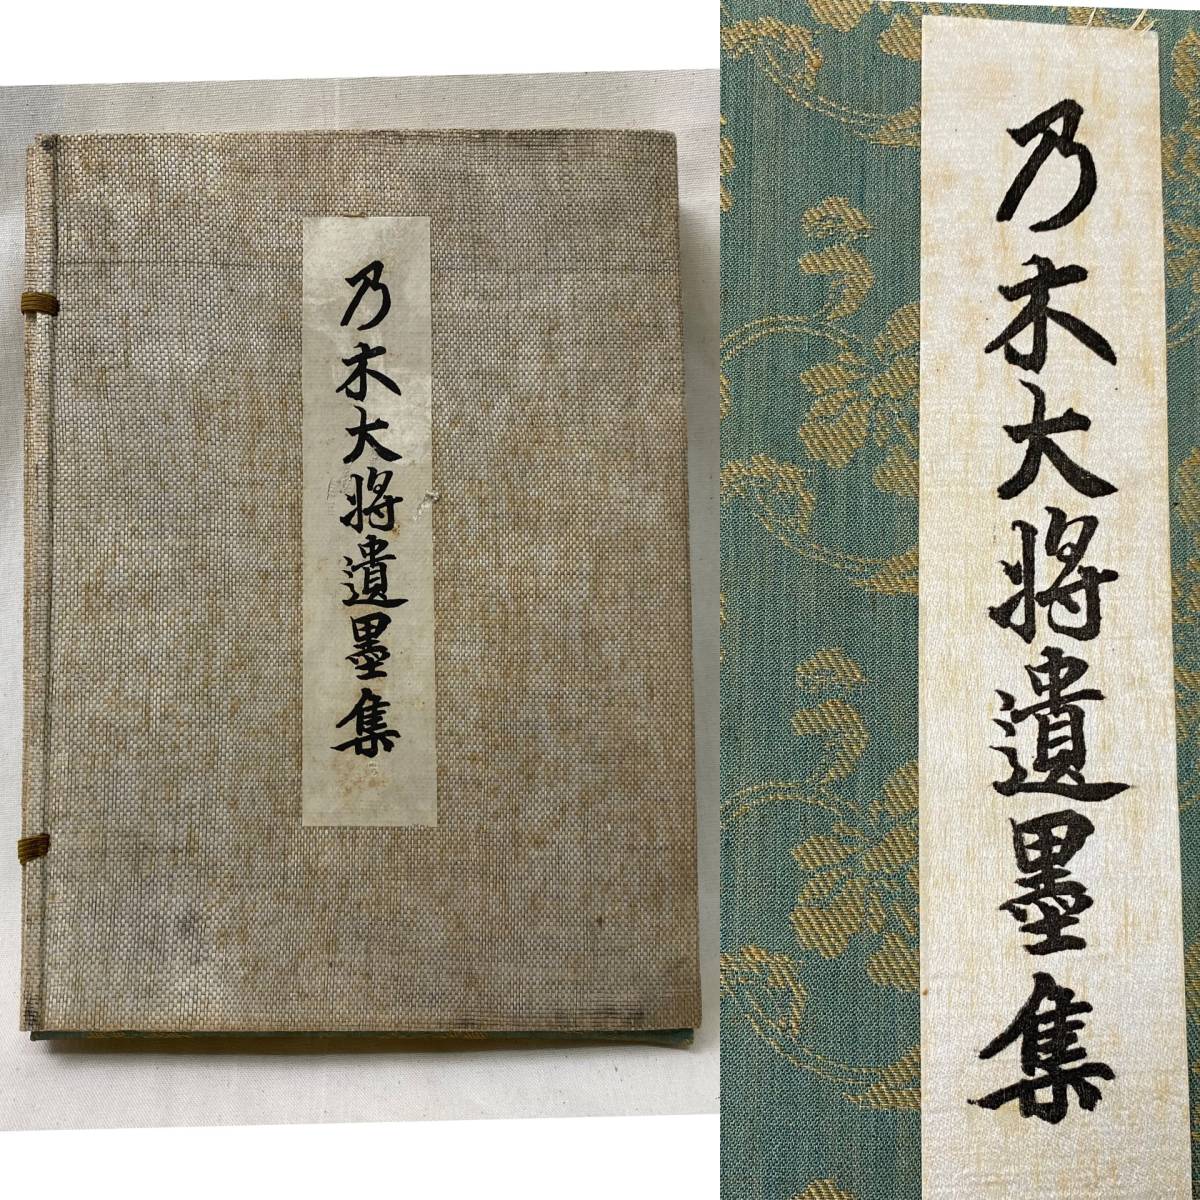 乃木大将遺墨集
乃木大将遺墨集